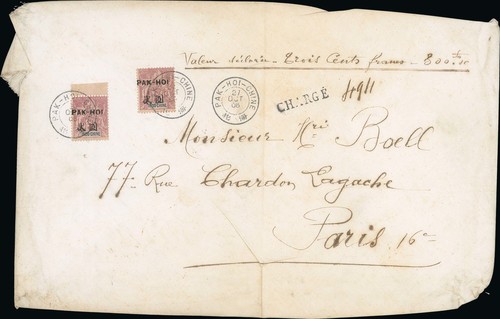 Valeur déclarée - Trois Cents francs - 300
PAK-HOI
PAK-HOI
PAK-HOI-CHINE
PAK-HOI-CHINE
PAK-HOI-CHINE
CHARGÉ
Monsieur Hri Boell
77 Rue Chardon Lagache
Paris 16e